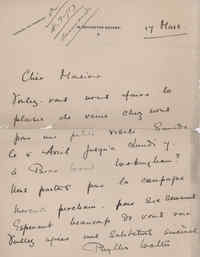 17 Mars.
Cher Monsieur
Voulez-vous nous faire le
plaisir de venir chez nous
pour une petite visite Samedi
le 5 Avril jusqu'à lundi 7
à Wokingham?
Nous partons pour la campagne
prochain. pour six semaines
Espérant beaucoup de vous voir
Veuillez agréer mes salutations
Phyllis